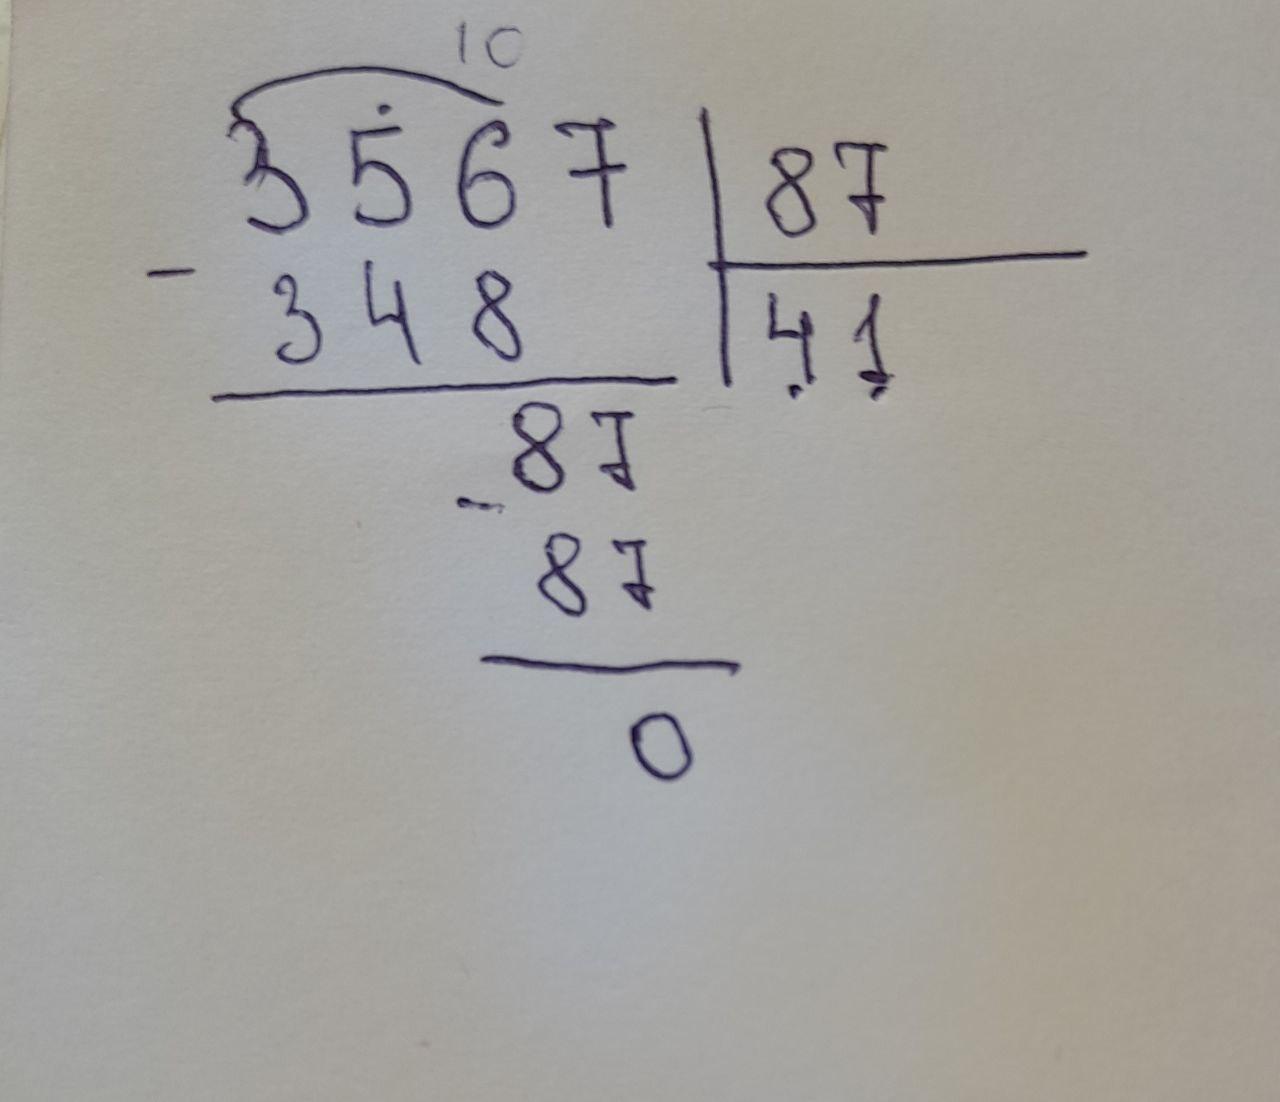 10
3567 | 87
- 348 | 41
87
- 87
0